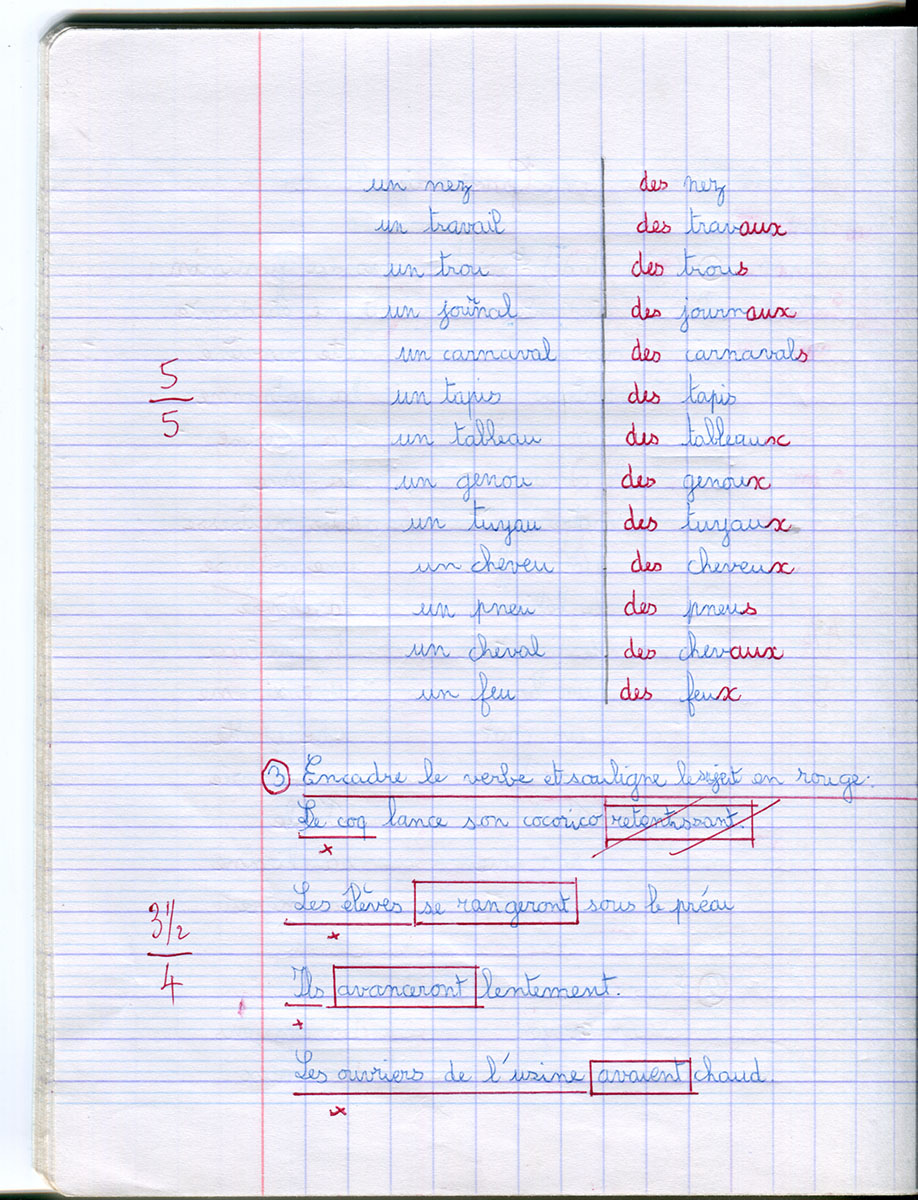 un nez des nez
un travail des travaux
un trou des trous
un journal des journaux
un carnaval des carnavals
un tapis des tapis
5/5
un tableau des tableaux
un genou des genoux
un tuyau des tuyaux
un cheveu des cheveux
un pneu des pneus
un cheval des chevaux
un feu des feux
3 Encadre le verbe et souligne le sujet en rouge:
Le coq lance son cocorico retentissant.
Les élèves se rangeront sous le préau
3 1/2 / 4
Ils avanceront lentement.
Les ouvriers de l'usine avaient chaud.